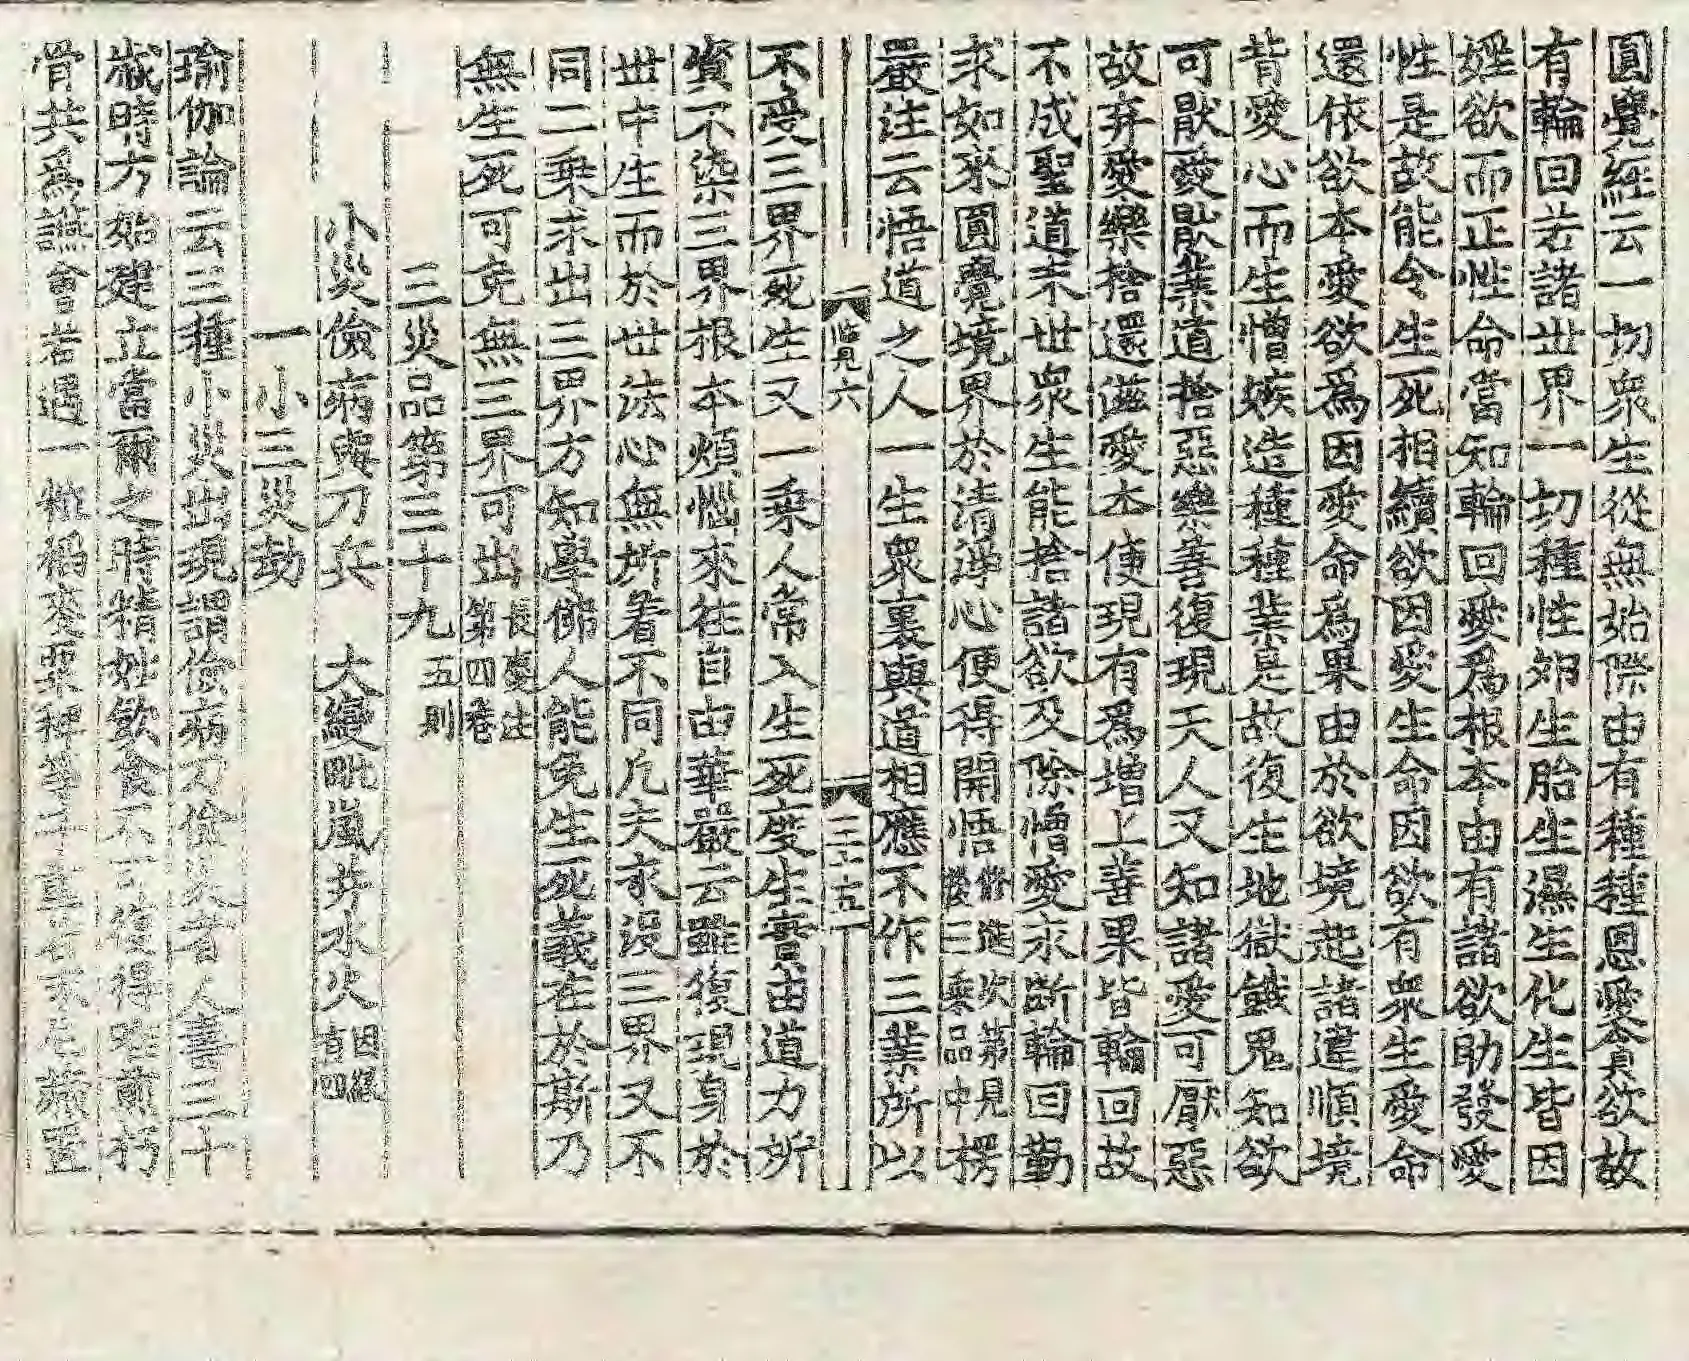 圓覺經云一切衆生從無始際由有種種恩愛貪欲故
有輪回若諸世界一切種性卵生胎生濕生化生皆因
婬欲而正性命當知輪回愛爲根本由有諸欲助發愛
性是故能令生死相續欲因愛生命因欲有衆生愛命
還依欲本愛欲爲因愛命爲果由於欲境起諸違順境
背愛心而生憎嫉造種種業是故復生地獄餓鬼知欲
可厭愛厭業道捨惡樂善復現天人又知諸愛可厭惡
故弃愛樂捨還滋愛本使現有爲增上善果皆輪回故
不成聖道未世衆生能捨諸欲及除憎愛永斷輪回勤
求如來圓覺境界於清淨心便得開悟修進次第見後三乘品中楞
嚴注云悟道之人一生衆裏與道相應不作三業所以
六 三十五
不受三界死生又一乘人常入生死度生實由道力所
資不染三界根本煩惱來往自由華嚴云雖復現身於
世中生而於世法心無所着不同凡夫永没三界又不
同二乘求出三界方知學佛人能免生死義在於斯乃
無生死可免無三界可出長慶注第四卷
三災品第三十九 五則
小災儉病與刀兵 大變毗嵐并水火
一小三災劫
瑜伽論云三種小災出現謂儉病刀儉災者人壽三十
歲時方始建立當爾之時精妙飲食不可復得唯煎朽
骨共爲讌會若遇一粒稻麥粟稗等子重若末尼藏置